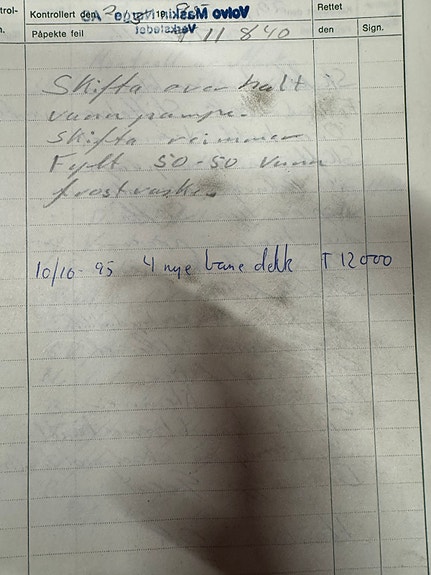 Rettet
Kontrollert den 19
trol-
n.
Påpekte feil
11 840
den
Sign.
Volvo Maskin Norge AS
Verkstedet
Skifta overhalt
vannpumpe.
Skifta reimmer
Fylt 50-50 vann
frostvæske.
10/10-95 4 nye bane dekk T 12000